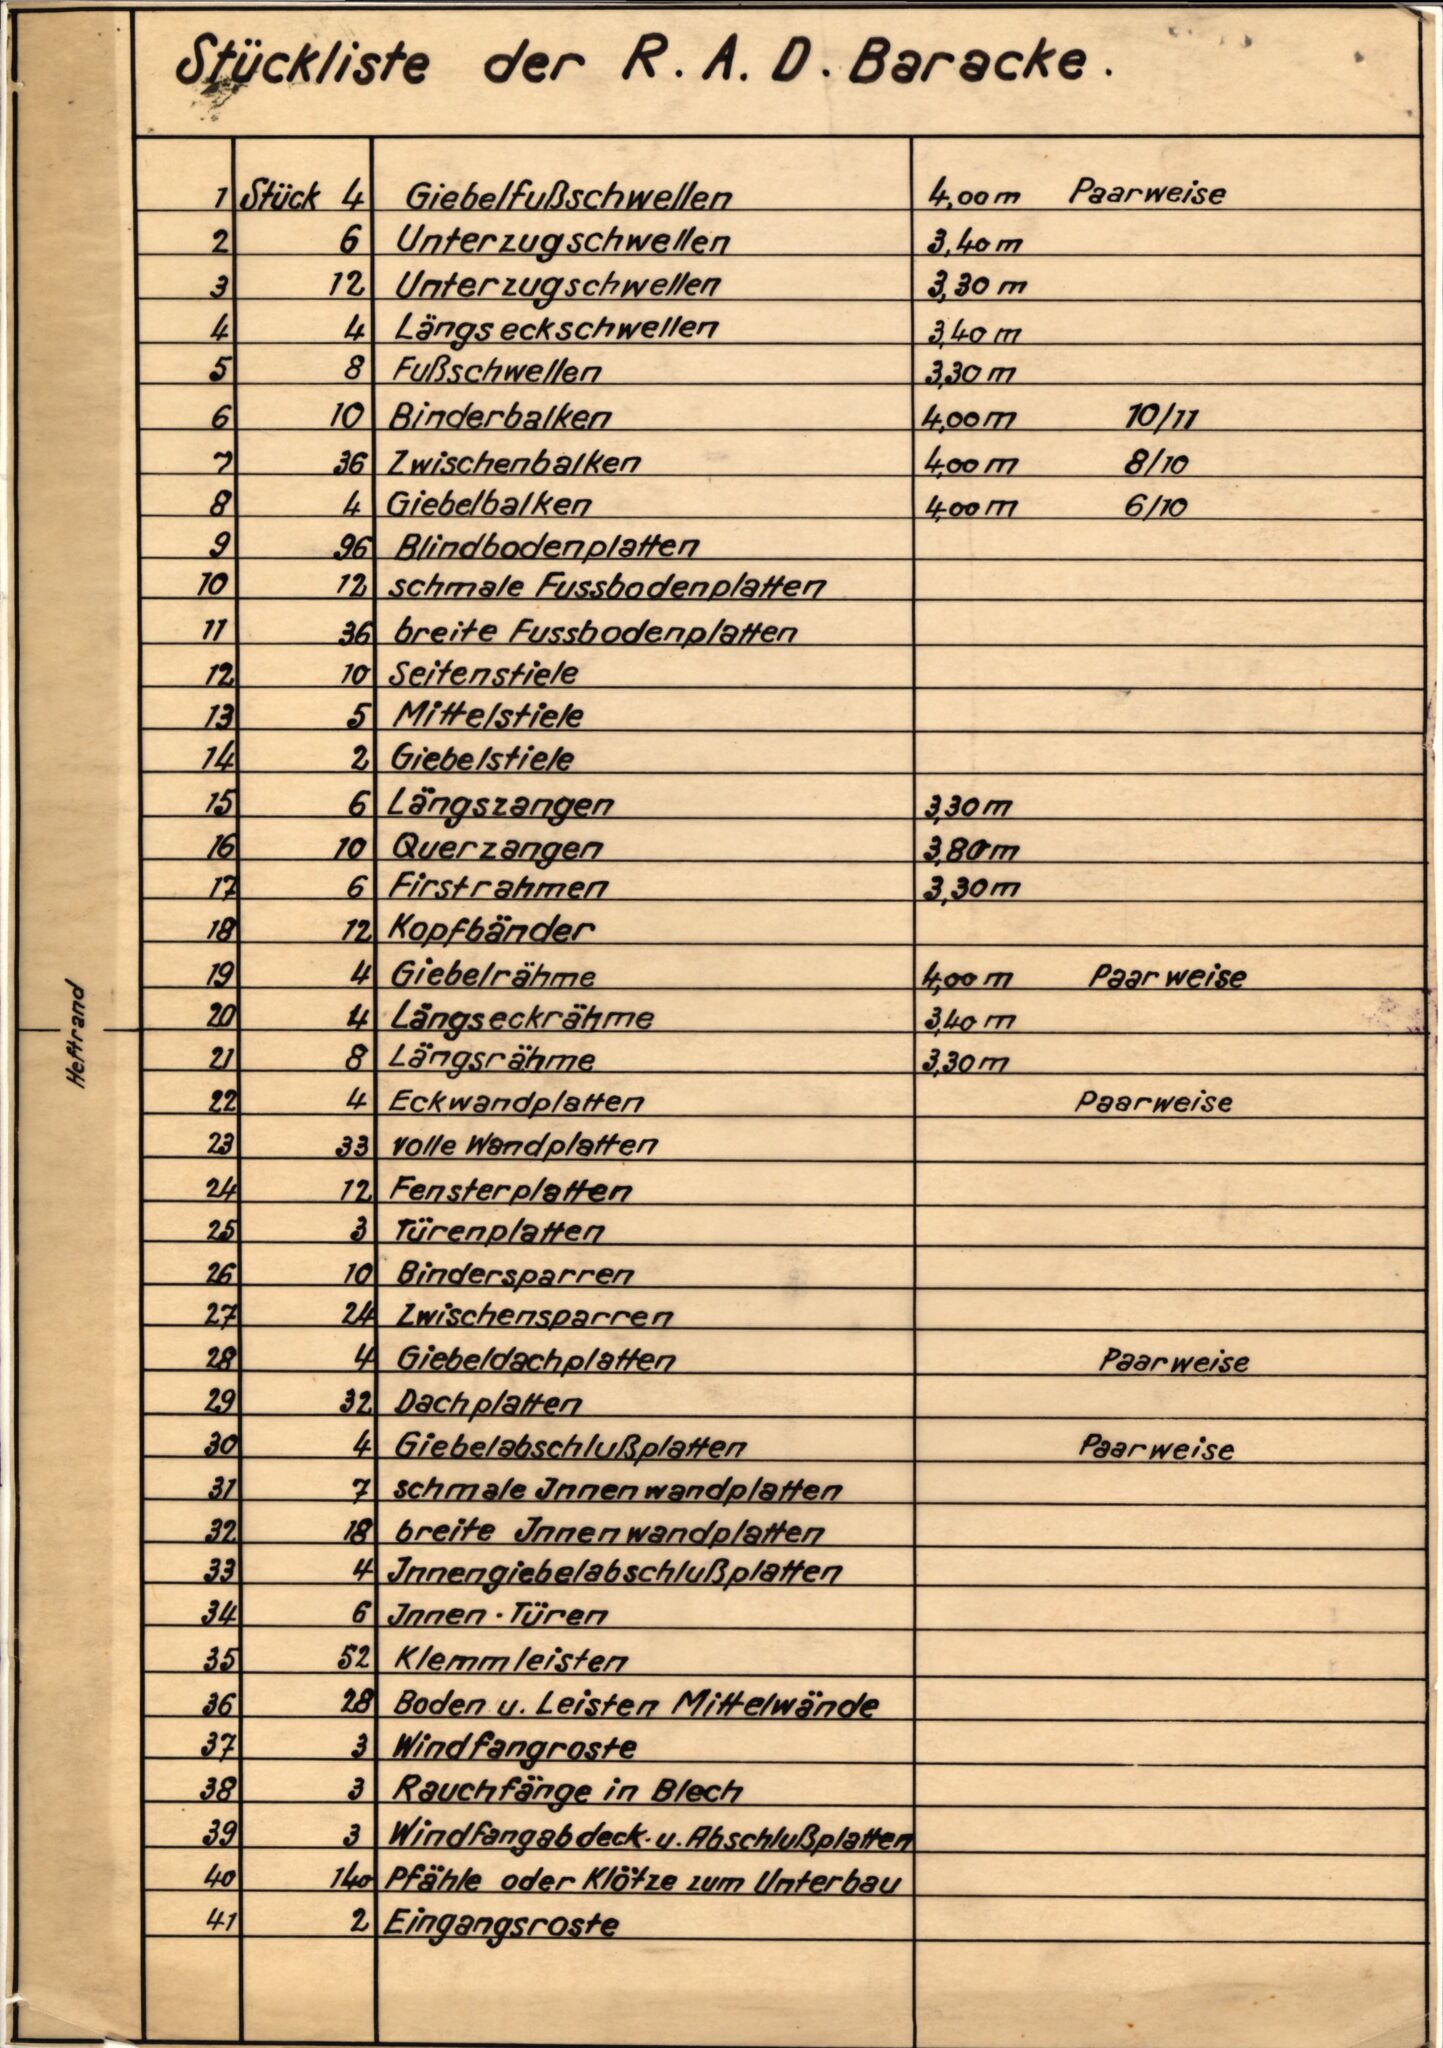 Stückliste der R.A.D. Baracke.
1 Stück 4 Giebelfußschwellen 4,00 m Paarweise
2 6 Unterzugschwellen 3,40 m
3 12 Unterzugschwellen 3,30 m
4 4 Längseckschwellen 3,40 m
5 8 Fußschwellen 3,30 m
6 10 Binderbalken 4,00 m 10/11
7 36 Zwischenbalken 4,00 m 8/10
8 4 Giebelbalken 4,00 m 6/10
9 96 Blindbodenplatten
10 12 schmale Fussbodenplatten
11 36 breite Fussbodenplatten
12 10 Seitenstiele
13 5 Mittelstiele
14 2 Giebelstiele
15 6 Längszangen 3,30 m
16 10 Querzangen 3,80 m
17 6 Firstrahmen 3,30 m
18 12 Kopfbänder
19 4 Giebelrähme 4,00 m Paarweise
20 4 Längseckrähme 3,40 m
21 8 Längsrähme 3,30 m
22 4 Eckwandplatten Paarweise
23 33 volle Wandplatten
24 12 Fensterplatten
25 3 Türenplatten
26 10 Bindersparren
27 24 Zwischensparren
28 4 Giebeldachplatten Paarweise
29 32 Dachplatten
30 4 Giebelabschlußplatten Paarweise
31 7 schmale Jnnenwandplatten
32 18 breite Jnnenwandplatten
33 4 Jnnengiebelabschlußplatten
34 6 Jnnen-Türen
35 52 Klemmleisten
36 28 Boden u. Leisten Mittelwände
37 3 Windfangroste
38 3 Rauchfänge in Blech
39 3 Windfangabdeck- u. Abschlußplatten
40 140 Pfähle oder Klötze zum Unterbau
41 2 Eingangsroste
Heftrand